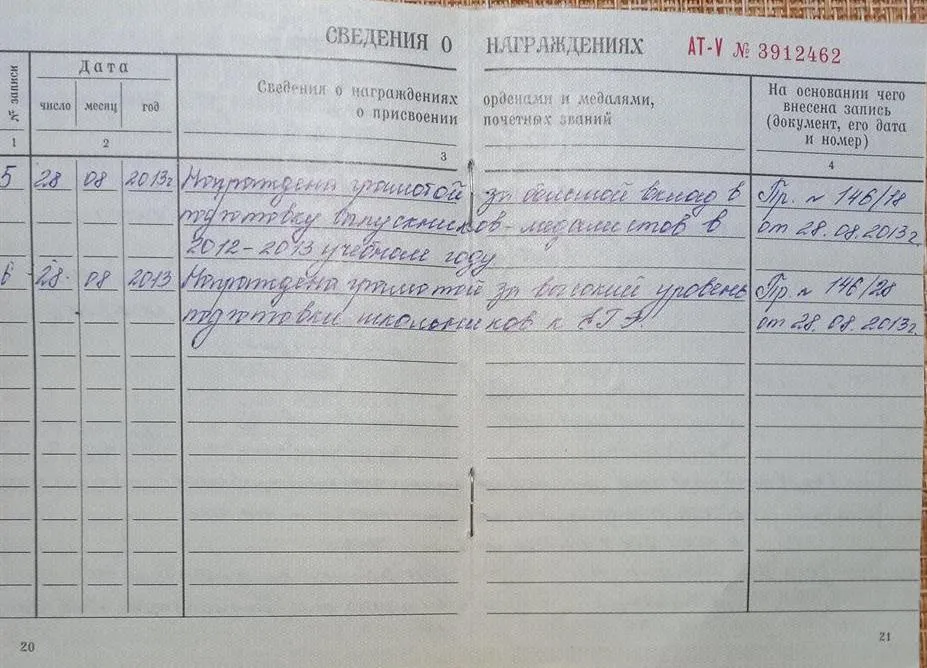 СВЕДЕНИЯ О НАГРАЖДЕНИЯХ АТ-V № 3912462
№ записи
Дата
число месяц год
Сведения о награждениях орденами и медалями,
о присвоении почетных званий
На основании чего
внесена запись
(документ, его дата
и номер)
1 2 3 4
5 28 08 2013г Награждена грамотой за большой вклад в Пр. № 146/18
подготовку выпускников-медалистов в от 28.08.2013г.
2012-2013 учебном году
6 28. 08 2013 Награждена грамотой за высокий уровень Пр. № 146/28
подготовки школьников к ЕГЭ. от 28.08.2013г.
20 21